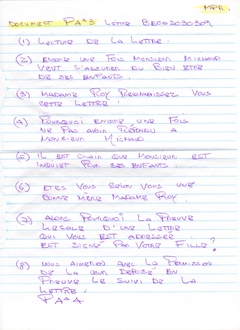 MPR.
DOCUMENT PA^3 LETTRE
(1) LECTURE DE LA LETTRE.
(2) ENCORE UNE FOIS MONSIEUR MICHAUD
VEUT S'ASSURER DU BIEN ETRE
DE SES ENFANTS.
(3) MADAME ROY RECONNAISSEZ VOUS
CETTE LETTRE!
(4) POURQUOI ENCORE UNE FOIS
NE PAS AVOIR RÉPONDU A
MONSIEUR MICHAUD
(5) IL EST CLAIR QUE MONSIEUR EST
INQUIET POUR SES ENFANTS.
(6) ETES VOUS SELON VOUS UNE
BONNE MÈRE MADAME ROY.
(7) ALORS POURQUOI LA PREUVE
LEGALE D'UNE LETTRE
QUI VOUS EST ADRESSER
EST SIGNÉ PAR VOTRE FILLE?
(8) NOUS AIMERION AVEC LA PERMISSION
DE LA COUR DEPOSÉ EN
PREUVE LE SUIVI DE LA
LETTRE.
PA^4